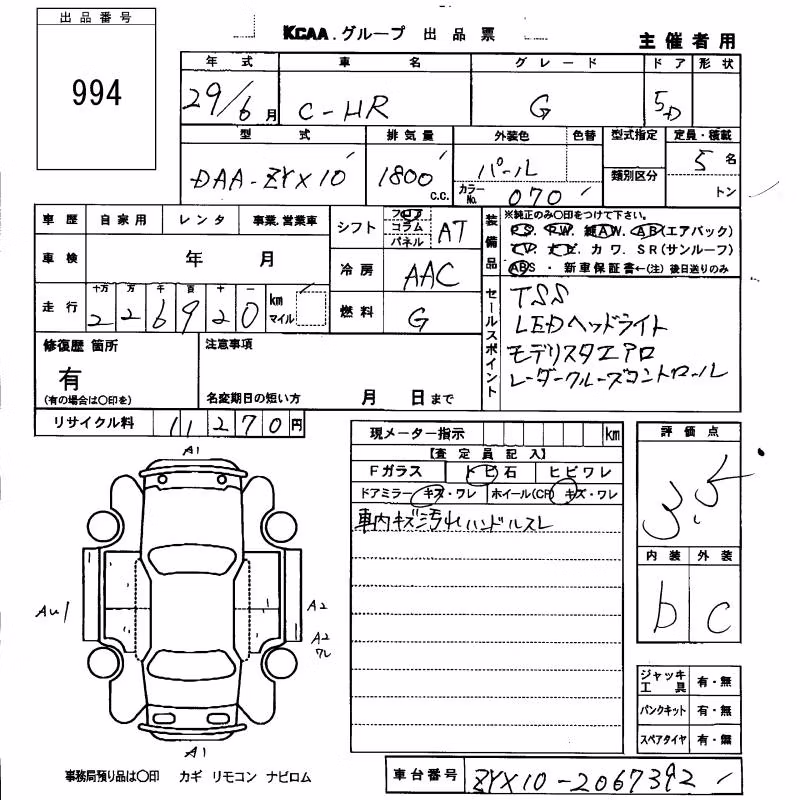 出品番号
994
KCAA.グループ 出品票
主催者用
年式 車名 グレード ドア 形状
29/6月 C-HR G 5D
型式 排気量 外装色 色替 型式指定 定員・積載
DAA-ZYX10 1800 c.c. パール 5名
カラーNo. 070 類別区分 トン
車歴 自家用 レンタ 事業.営業車
シフト フロア コラム パネル AT
装備品 ※純正のみ〇印をつけて下さい。
P.S. P.W. 純A.W. A.B(エアバック)
T.V. ナビ. カワ. SR(サンルーフ)
ABS ・ 新車保証書←(注) 後日送りのみ
車検 年 月
冷房 AAC
走行 十万 万 千 百 十 一
226920 km マイル
燃料 G
セールスポイント
TSS
LEDヘッドライト
モデリスタエアロ
レーダークルーズコントロール
修復歴 箇所
有
(有の場合は〇印を)
注意事項
名変期日の短い方 月 日まで
リサイクル料 11270円
現メーター指示 km
【査定員記入】
Fガラス トビ石 ヒビワレ
ドアミラー キズ・ワレ ホイール(CP) キズ・ワレ
車内キズ汚れハンドルスレ
評価点
3.5
内装 外装
b c
A1
AU1
A2
A2
ワレ
A1
ジャッキ工具 有・無
パンクキット 有・無
スペアタイヤ 有・無
事務局預り品は〇印 カギ リモコン ナビロム
車台番号 ZYX10-2067392